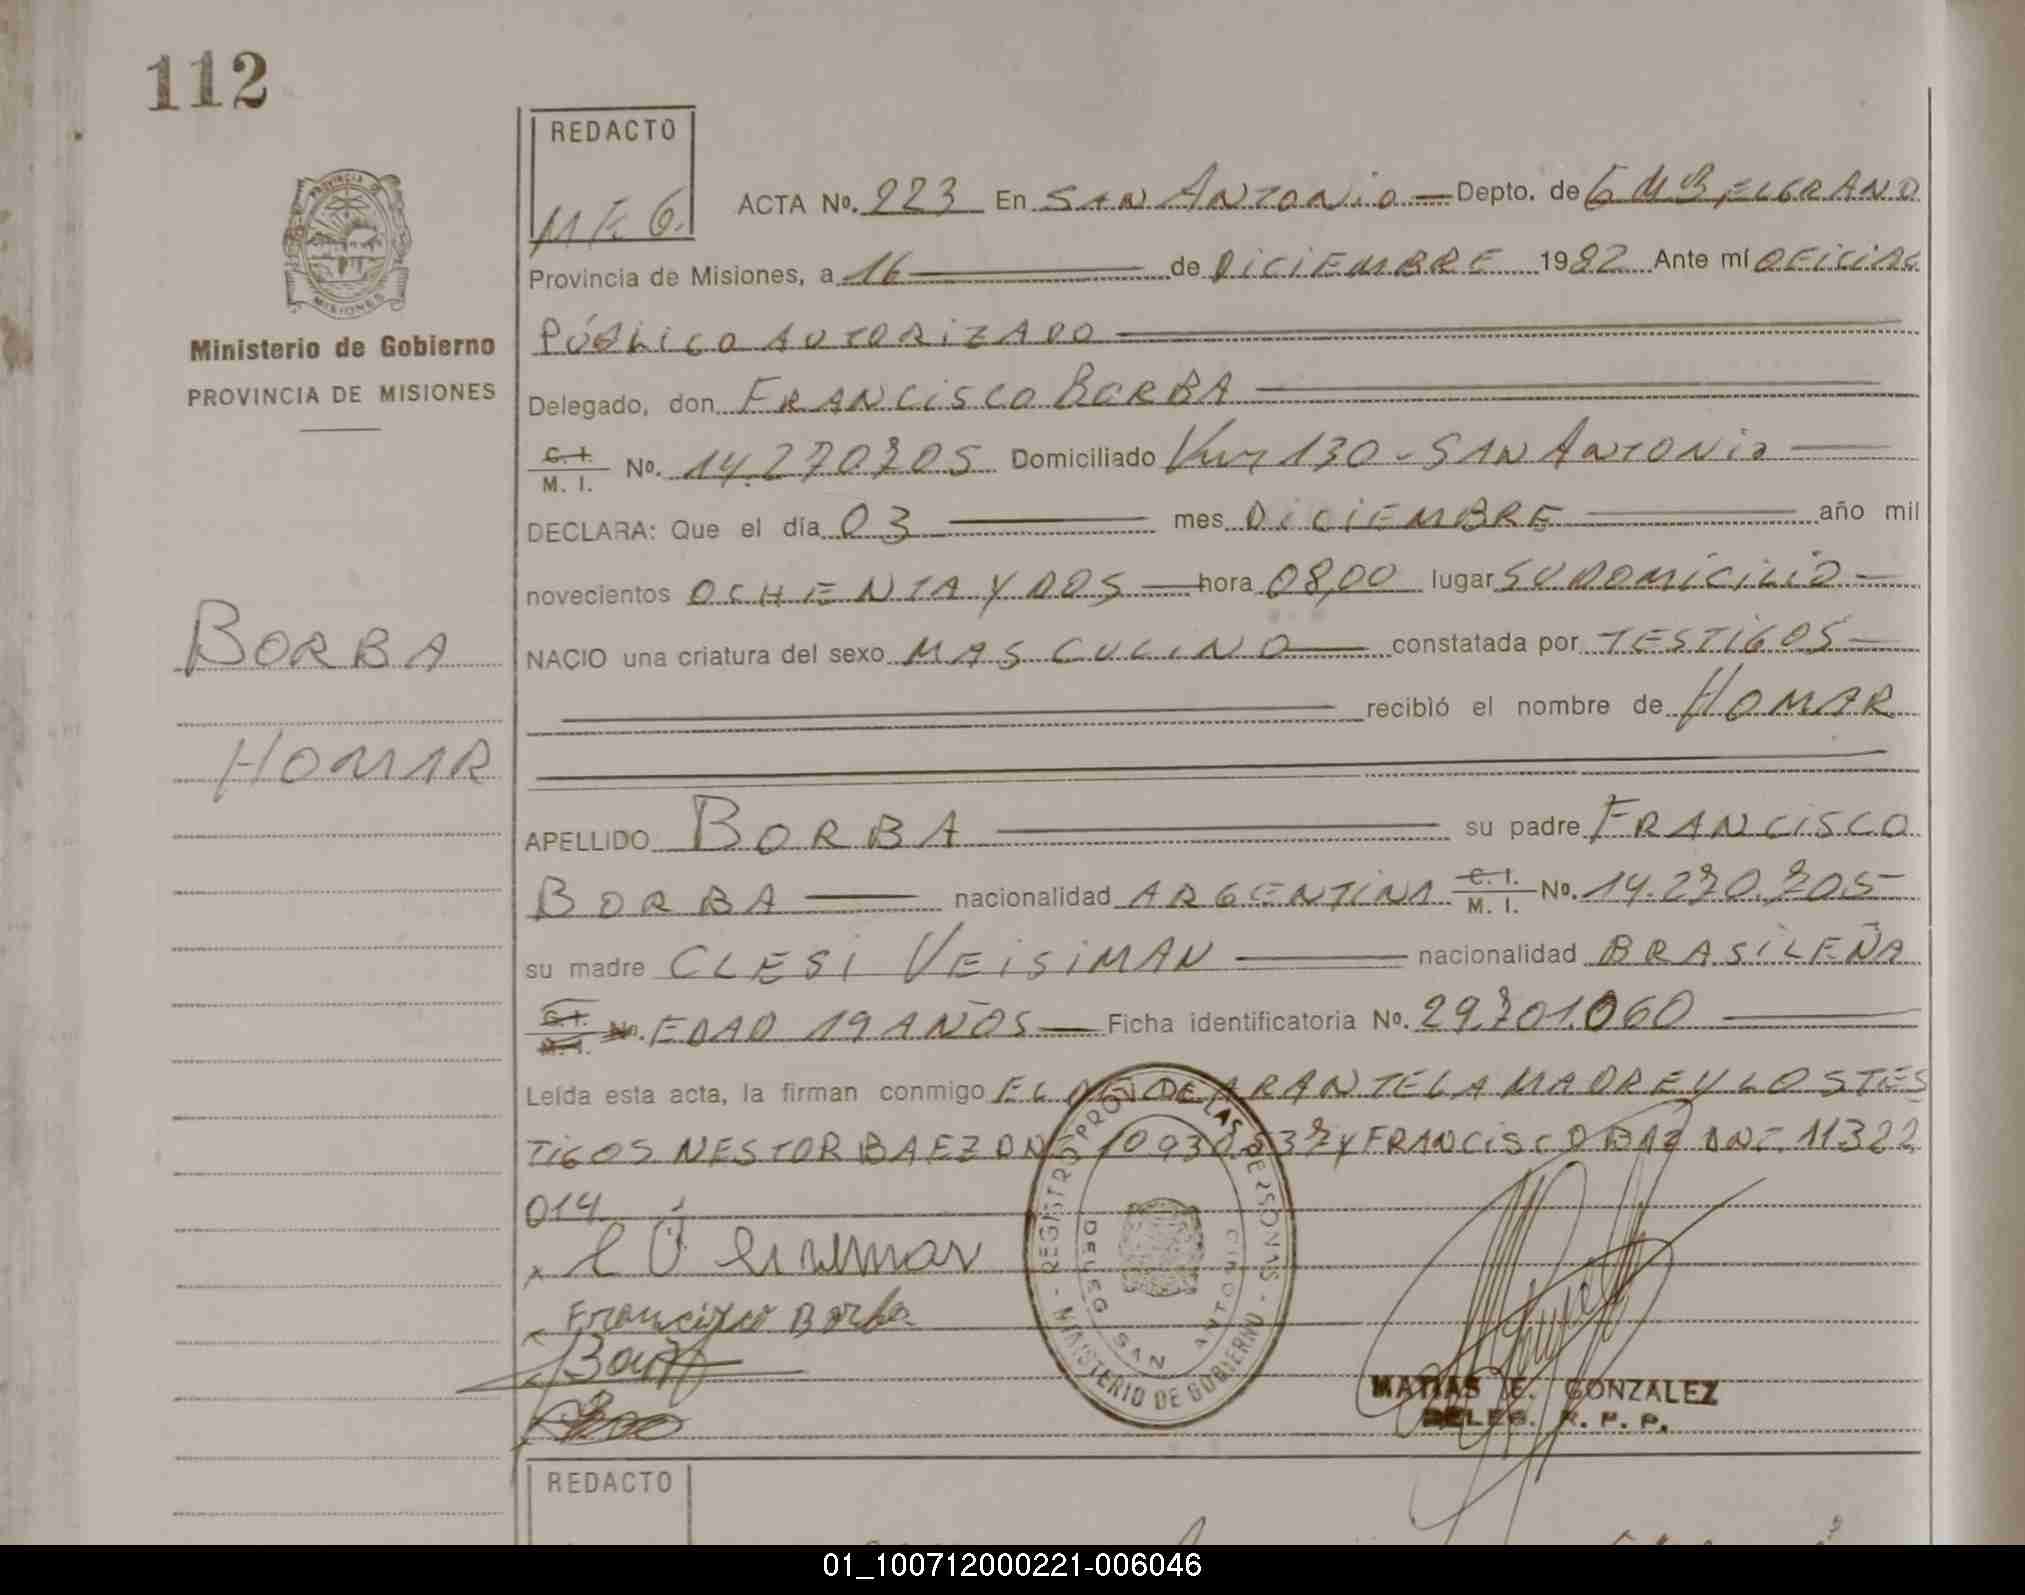 112
REDACTO
M E G.
PROVINCIA DE
MISIONES
Ministerio de Gobierno
PROVINCIA DE MISIONES
ACTA Nº. 223 En SAN ANTONIO — Depto. de G M BELGRANO
Provincia de Misiones, a 16 — de DICIEMBRE 1982 Ante mí OFICIAL
PÚBLICO AUTORIZADO —
Delegado, don FRANCISCO BORBA —
C. I. M. I. Nº. 14.270.705 Domiciliado Km 130 - SAN ANTONIO —
DECLARA: Que el día 03 — mes DICIEMBRE — año mil
novecientos OCHENTA Y DOS — hora 08,00 lugar SU DOMICILIO —
NACIO una criatura del sexo MASCULINO — constatada por TESTIGOS —
— recibió el nombre de HOMAR
BORBA
HOMAR
APELLIDO BORBA — su padre FRANCISCO
BORBA — nacionalidad ARGENTINA C. I. M. I. Nº. 14.270.705
su madre CLESI VEISIMAN — nacionalidad BRASILEÑA
C. I. M. I. No. EDAD 19 AÑOS — Ficha identificatoria Nº. 29.701.060 —
Leída esta acta, la firman conmigo EL DECLARANTE LA MADRE Y LOS TES
TIGOS NESTOR BAEZ DNI 10930.537 Y FRANCISCO BAZ DNI. 11322
014
Francisco Borba
REGISTRO PROV. DE LAS PERSONAS - MINISTERIO DE GOBIERNO -
DELEG. SAN ANTONIO
MATIAS E. GONZALEZ
DELEG. R. P. P.
REDACTO
01_100712000221-006046